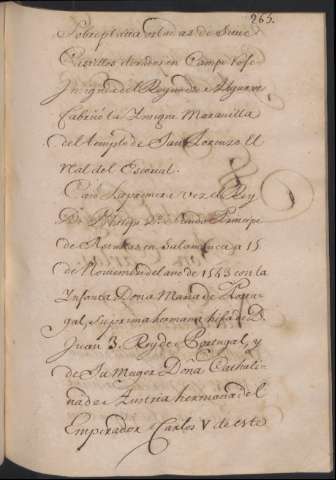 265.
Sobre plata orladas de Siete
Castillos dorados en Campo rojo
Insignia del Reyno de Algarve.
Fabricó la Insigne Maravilla
del templo de San Lorenzo El
Real del Escorial.
Casó la primera vez el Rey
Dn Phelipe 2º siendo Principe
de Asturias en Salamanca a 15
de Noviembre del año de 1543 con la
Infanta Doña Maria de Portu
gal, su prima hermana hija de D.
Juan 3. Rey de Portugal, y
de Su Muger Doña Cathali
na de Austria hermana del
Emperador Carlos V. de este